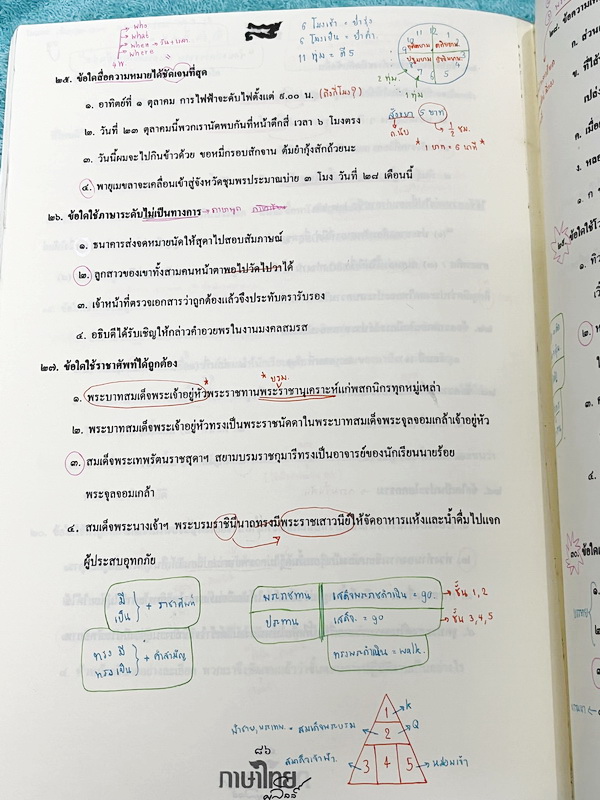 who
what
when → วัน เวลา
where
4W
6 โมงเช้า = ย่ำรุ่ง
6 โมงเย็น = ย่ำค่ำ
11 ทุ่ม = ตี 5
2 ทุ่ม
1 ทุ่ม
๒๕. ข้อใดสื่อความหมายได้ชัดเจนที่สุด
๑. อาทิตย์ที่ ๑ ตุลาคม การไฟฟ้าจะดับไฟตั้งแต่ ๙.๐๐ น. (ถึงกี่โมง?)
๒. วันที่ ๒๓ ตุลาคมนี้พวกเรานัดพบกันที่หน้าตึกสี่ เวลา ๖ โมงตรง
5 บาท
ค.นับ
½ ชม.
* 1 บาท = 6 นาที *
๓. วันนี้ผมจะไปกินข้าวด้วย ขอหมี่กรอบสักจาน ต้มยำกุ้งสักถ้วยนะ
๔. พายุเมขลาจะเคลื่อนเข้าสู่จังหวัดชุมพรประมาณบ่าย ๓ โมง วันที่ ๒๘ เดือนนี้
๒๖. ข้อใดใช้ภาษาระดับไม่เป็นทางการ → ภาษาพูด
๑. ธนาคารส่งจดหมายนัดให้สุดาไปสอบสัมภาษณ์
๒. ลูกสาวของเขาทั้งสามคนหน้าตาพอไปวัดไปวาได้
๓. เจ้าหน้าที่ตรวจเอกสารว่าถูกต้องแล้วจึงประทับตรารับรอง
๔. อธิบดีได้รับเชิญให้กล่าวคำอวยพรในงานมงคลสมรส
๒๗. ข้อใดใช้ราชาศัพท์ได้ถูกต้อง
* บรม.
๑. พระบาทสมเด็จพระเจ้าอยู่หัว*พระราชทานพระราชานุเคราะห์แก่พสกนิกรทุกหมู่เหล่า
๒. พระบาทสมเด็จพระเจ้าอยู่หัวทรงเป็นพระราชนัดดาในพระบาทสมเด็จพระจุลจอมเกล้าเจ้าอยู่หัว
๓. สมเด็จพระเทพรัตนราชสุดาฯ สยามบรมราชกุมารีทรงเป็นอาจารย์ของนักเรียนนายร้อย
พระจุลจอมเกล้า
๔. สมเด็จพระนางเจ้าฯ พระบรมราชินีนาถทรงมีพระราชเสาวนีย์ให้จัดอาหารแห้งและน้ำดื่มไปแจก
ผู้ประสบอุทกภัย
มี
เป็น } + ราชาศัพท์
ทรงมี
ทรงเป็น } + คำสามัญ
พระราชทาน | เสด็จพระราชดำเนิน = go. → ชั้น 1,2
ประทาน | เสด็จ. = go → ชั้น 3,4,5
ทรงพระดำเนิน = walk.
1 → K
2 → Q
3 4 5
= สมเด็จพระบรม
สมเด็จเจ้าฟ้า
หม่อมเจ้า
๘๖
ภาษาไทย